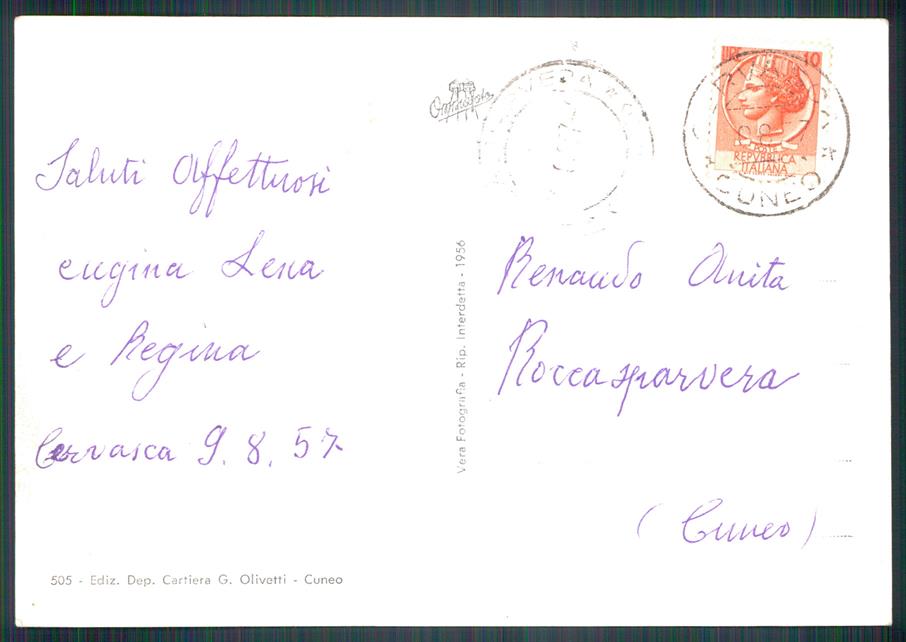 Saluti Affettuosi
cugina Lena
e Regina
Cervasca 9. 8. 57
505 - Ediz. Dep. Cartiera G. Olivetti - Cuneo
Vera Fotografia - Rip. Interdetta - 1956
LIRE 10
POSTE
REPVBBLICA
ITALIANA
CUNEO
Renaudo Anita
Roccasparvera
(Cuneo)